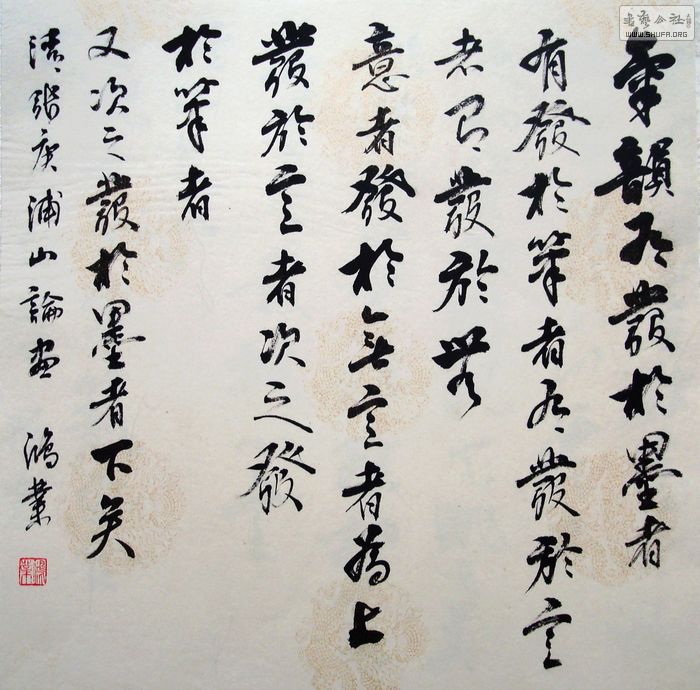 氣韻有發於墨者
有發於筆者有發於意
者有發於無
意者發於無意者為上
發於意者次之發
於筆者
又次之發於墨者下矣
清張庚浦山論畫 鴻業
書藝公社
WWW.SHUFA.ORG